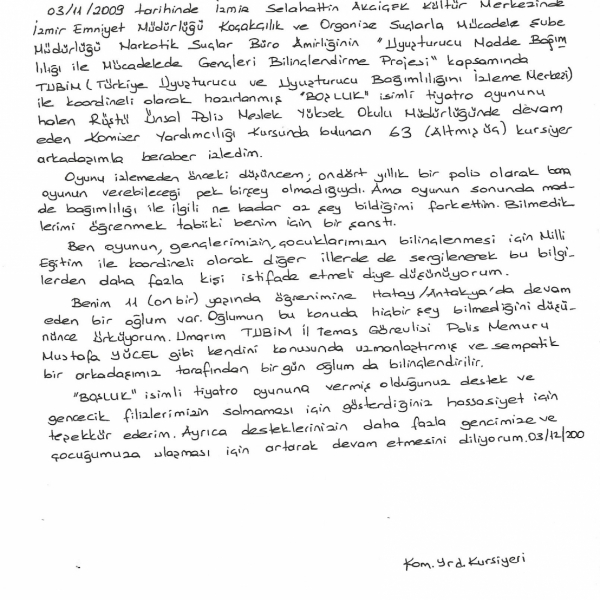 03/11/2009 tarihinde İzmir Selahattin Akçiçek Kültür Merkezinde
İzmir Emniyet Müdürlüğü Kaçakçılık ve Organize Suçlarla Mücadele Şube
Müdürlüğü Narkotik Suçlar Büro Amirliğinin "Uyuşturucu Madde Bağım
lılığı ile Mücadelede Gençleri Bilinçlendirme Projesi" kapsamında
TUBİM (Türkiye Uyuşturucu ve Uyuşturucu Bağımlılığını İzleme Merkezi)
ile koordineli olarak hazırlanmış "BOŞLUK" isimli tiyatro oyununu
halen Rüştü Ünsal Polis Meslek Yüksek Okulu Müdürlüğünde devam
eden Komiser Yardımcılığı Kursunda bulunan 63 (Altmış üç) kursiyer
arkadaşımla beraber izledim.
Oyunu izlemeden önceki düşüncem; ondört yıllık bir polis olarak bana
oyunun verebileceği pek birşey olmadığıydı. Ama oyunun sonunda mad-
de bağımlılığı ile ilgili ne kadar az şey bildiğimi farkettim. Bilmedik-
lerimi öğrenmek tabiiki benim için bir şanstı.
Ben oyunun, gençlerimizin, çocuklarımızın bilinçlenmesi için Milli
Eğitim ile koordineli olarak diğer illerde de sergilenerek bu bilgi-
lerden daha fazla kişi istifade etmeli diye düşünüyorum.
Benim 11 (on bir) yaşında öğrenimine Hatay/Antakya'da devam
eden bir oğlum var. Oğlumun bu konuda hiçbir şey bilmediğini düşü-
nünce ürküyorum. Umarım TUBİM İl Temas Görevlisi Polis Memuru
Mustafa YÜCEL gibi kendini konusunda uzmanlaştırmış ve sempatik
bir arkadaşımız tarafından bir gün oğlum da bilinçlendirilir.
"BOŞLUK" isimli tiyatro oyununa vermiş olduğunuz destek ve
gencecik filizlerimizin solmaması için gösterdiğiniz hassasiyet için
teşekkür ederim. Ayrıca desteklerinizin daha fazla gencimize ve
çocuğumuza ulaşması için artarak devam etmesini diliyorum. 03/12/200
Kom. Yrd. Kursiyeri